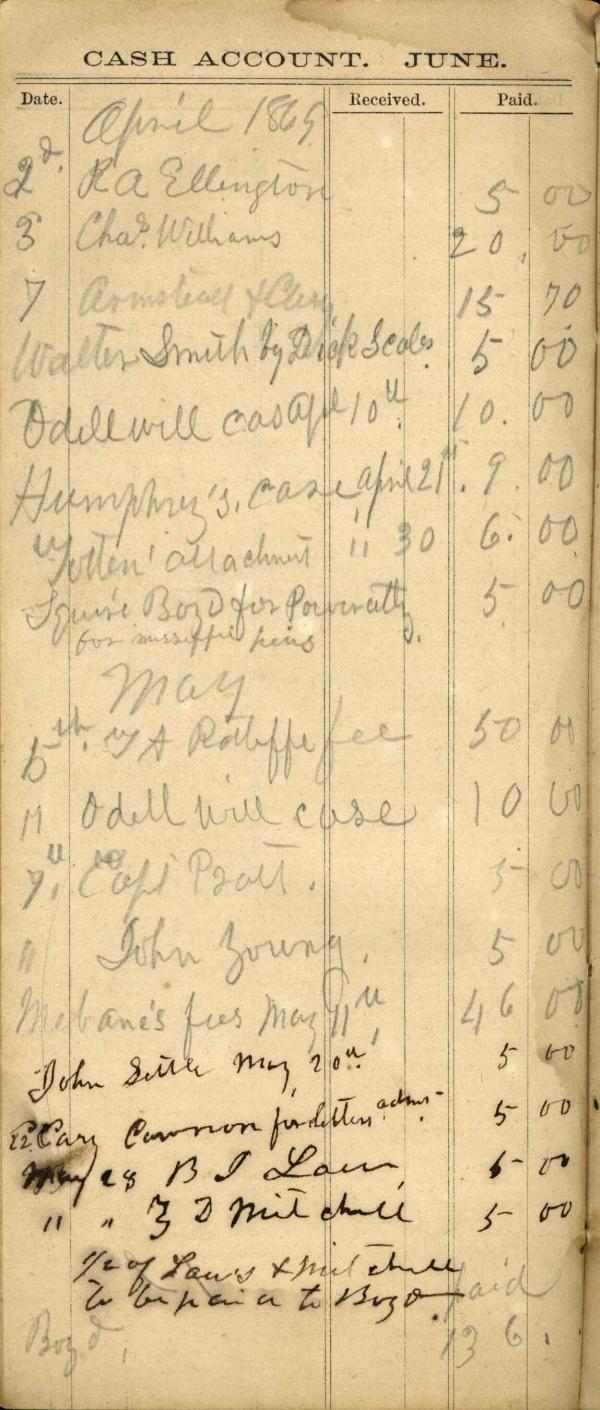 CASH ACCOUNT. JUNE.
Date. Received. Paid.
April 1869
2d. R A Ellington 5 00
3 Chas. Williams 20. 00
7 Armstead & Clary 15 70
Walter Smith by Dick Scales. 5 00
Odell will cas Apl 10th 10. 00
Humphrey's. case april 21st. 9. 00
Totten' attachment " 30 6. 00
Squire Boyd for Power atty. 5. 00
for mississippi
May
5th. A Ratliffe fee 50 00
11 Odell will case 10 00
7th. Capt Pratt. 5 00
" John Young. 5 00
Mebane's fees May 11th 46 00
John Settle May 20th 5 00
Cary Cannon for letters adms. 5 00
May 28 B J Law 5 00
" " Z D Mitchell 5 00
1/2 of Law's & Mitchell
to be paid to Boyd paid
Boyd, 136.